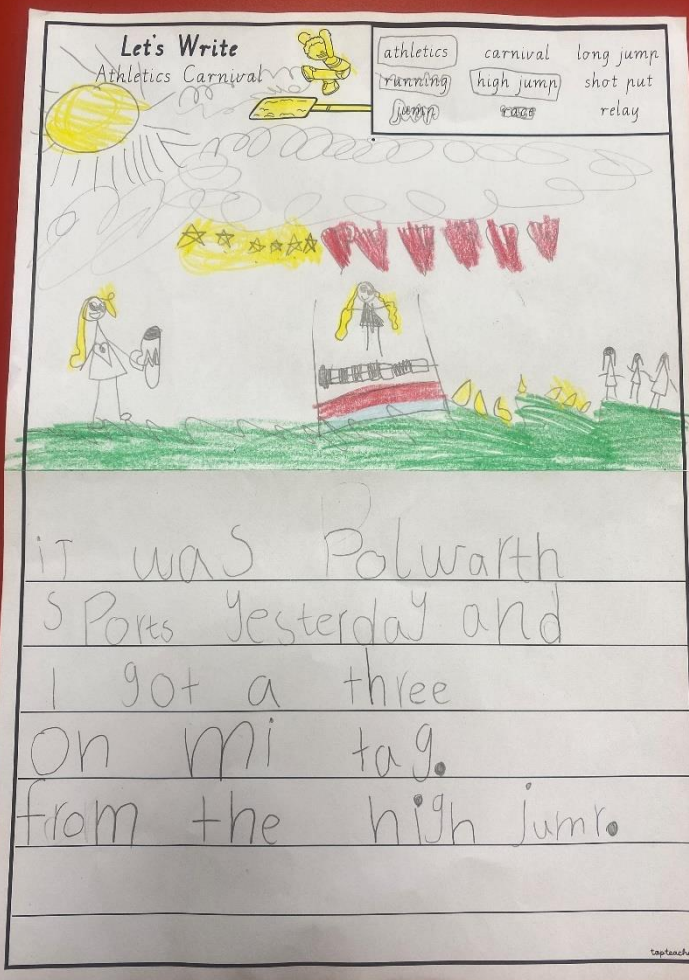 Let's Write
Athletics Carnival
athletics carnival long jump
running high jump shot put
jump race relay
iT was Polwarth
SPorts yesterday and
I got a three
on mi tag.
from the high jumr.
tapteach